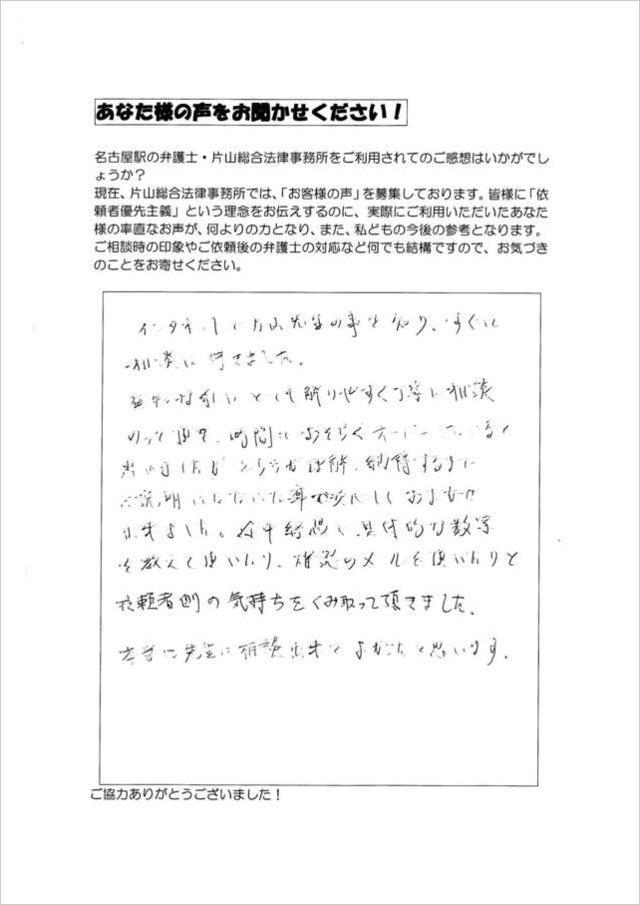 あなた様の声をお聞かせください！
名古屋駅の弁護士・片山総合法律事務所をご利用されてのご感想はいかがでし
ょうか？
現在、片山総合法律事務所では、「お客様の声」を募集しております。皆様に「依
頼者優先主義」という理念をお伝えするのに、実際にご利用いただいたあなた
様の率直なお声が、何よりの力となり、また、私どもの今後の参考となります。
ご相談時の印象やご依頼後の弁護士の対応など何でも結構ですので、お気づき
のことをお寄せください。
インタネットで片山先生の事を知り、すぐに
相談に行きました。
とても解りやすく丁寧に相談
のって頂き、時間も おそらくオーバー
理解、納得するまで
ご説明いただいた事
出来ました。 具体的な数字
を教えて頂いたり、 メールを頂いたりと
依頼者側の気持ちをくみ取って頂きました。
本当に先生に相談出来て よかったと思います。
ご協力ありがとうございました！